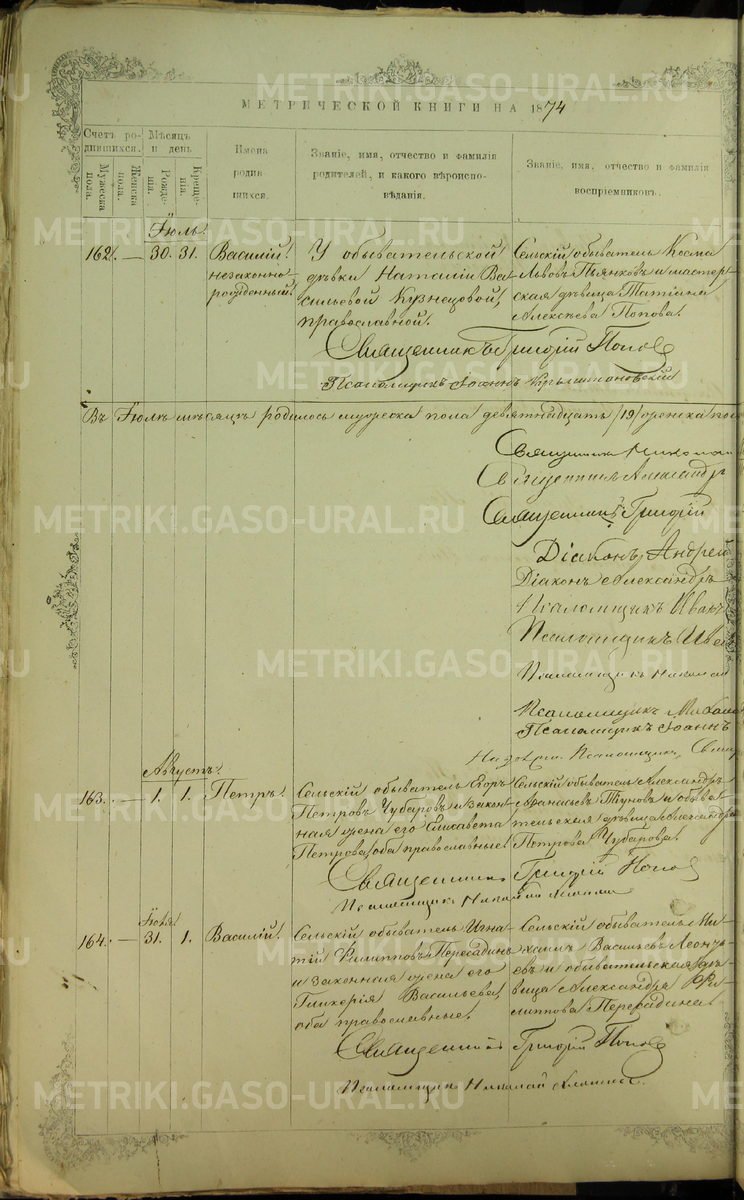 МЕТРИЧЕСКОЙ КНИГИ НА 1874
Счетъ родившихся.
Мужеска пола.
Женска пола.
Мѣсяцъ и день
Рожденія.
Крещенія.
Имена родившихся.
Званіе, имя, отчество и фамилія
родителей, и какого вѣроиспо-
вѣданія.
Званіе, имя, отчество и фамилія
воспріемниковъ.
Іюль.
162. — 30. 31.
Василій.
незаконно-
рожденный.
У обывательской
дѣвки Наталіи Ва
сильевой Кузнецовой,
православной.
Сельскій обыватель Косма
Львовъ Пьянковъ и мастер-
ская дѣвица Татіана
Алексѣева Попова.
Священникъ Григорій Попов
Псаломщикъ Іоаннъ
Въ Іюлѣ мѣсяцѣ родилось мужеска пола девятнадцать /19/ женска пол
Священникъ Никола
Священникъ Александръ
Священникъ Григорій
Діаконъ Андрей
Діаконъ Александръ
Псаломщикъ Иван
Псаломщикъ
Псаломщикъ Николай
Псаломщикъ Михаи
Псаломщикъ Іоаннъ
Псаломщик
Августъ.
163. — 1. 1.
Петръ.
Сельскій обыватель Егоръ
Петровъ Чубаровъ и закон-
ная жена его Елисавета
Петрова, оба православные.
Сельскій обыватель Александръ
Аѳанасьевъ Тіуновъ и обыва-
тельская дѣвица Александра
Петрова Чубарова.
Священникъ Григорій Попов
Псаломщикъ Николай
Іюля
164. — 31. 1.
Василій.
Сельскій обыватель Игна-
тій Филипповъ Перерадинъ
и законная жена его
Гликерія Васильева,
оба православные.
Сельскій обыватель Ми-
хаилъ Васильевъ Леонть-
евъ и обывательская дѣ-
вица Александра Фи-
липпова Перерадина.
Священникъ Григорій Попов
Псаломщикъ Николай
METRIKI.GASO-URAL.RU